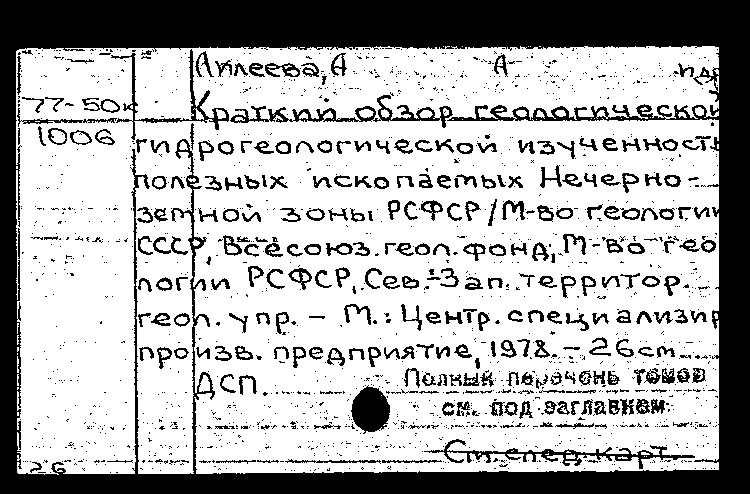 Лилеева, А А и др
77-50к Краткий обзор геологической
1006 гидрогеологической изученност
полезных ископаемых Нечерно-
земной зоны РСФСР/М-во геологии
СССР, Всесоюз. геол. фонд, М-во гео
логии РСФСР, Сев.-Зап. территор.
геол. упр. – М.: Центр. специализир
произв. предприятие, 1978. – 26 см.
ДСП. Полный перечень томов
см. под заглавием
См. след. карт.
26